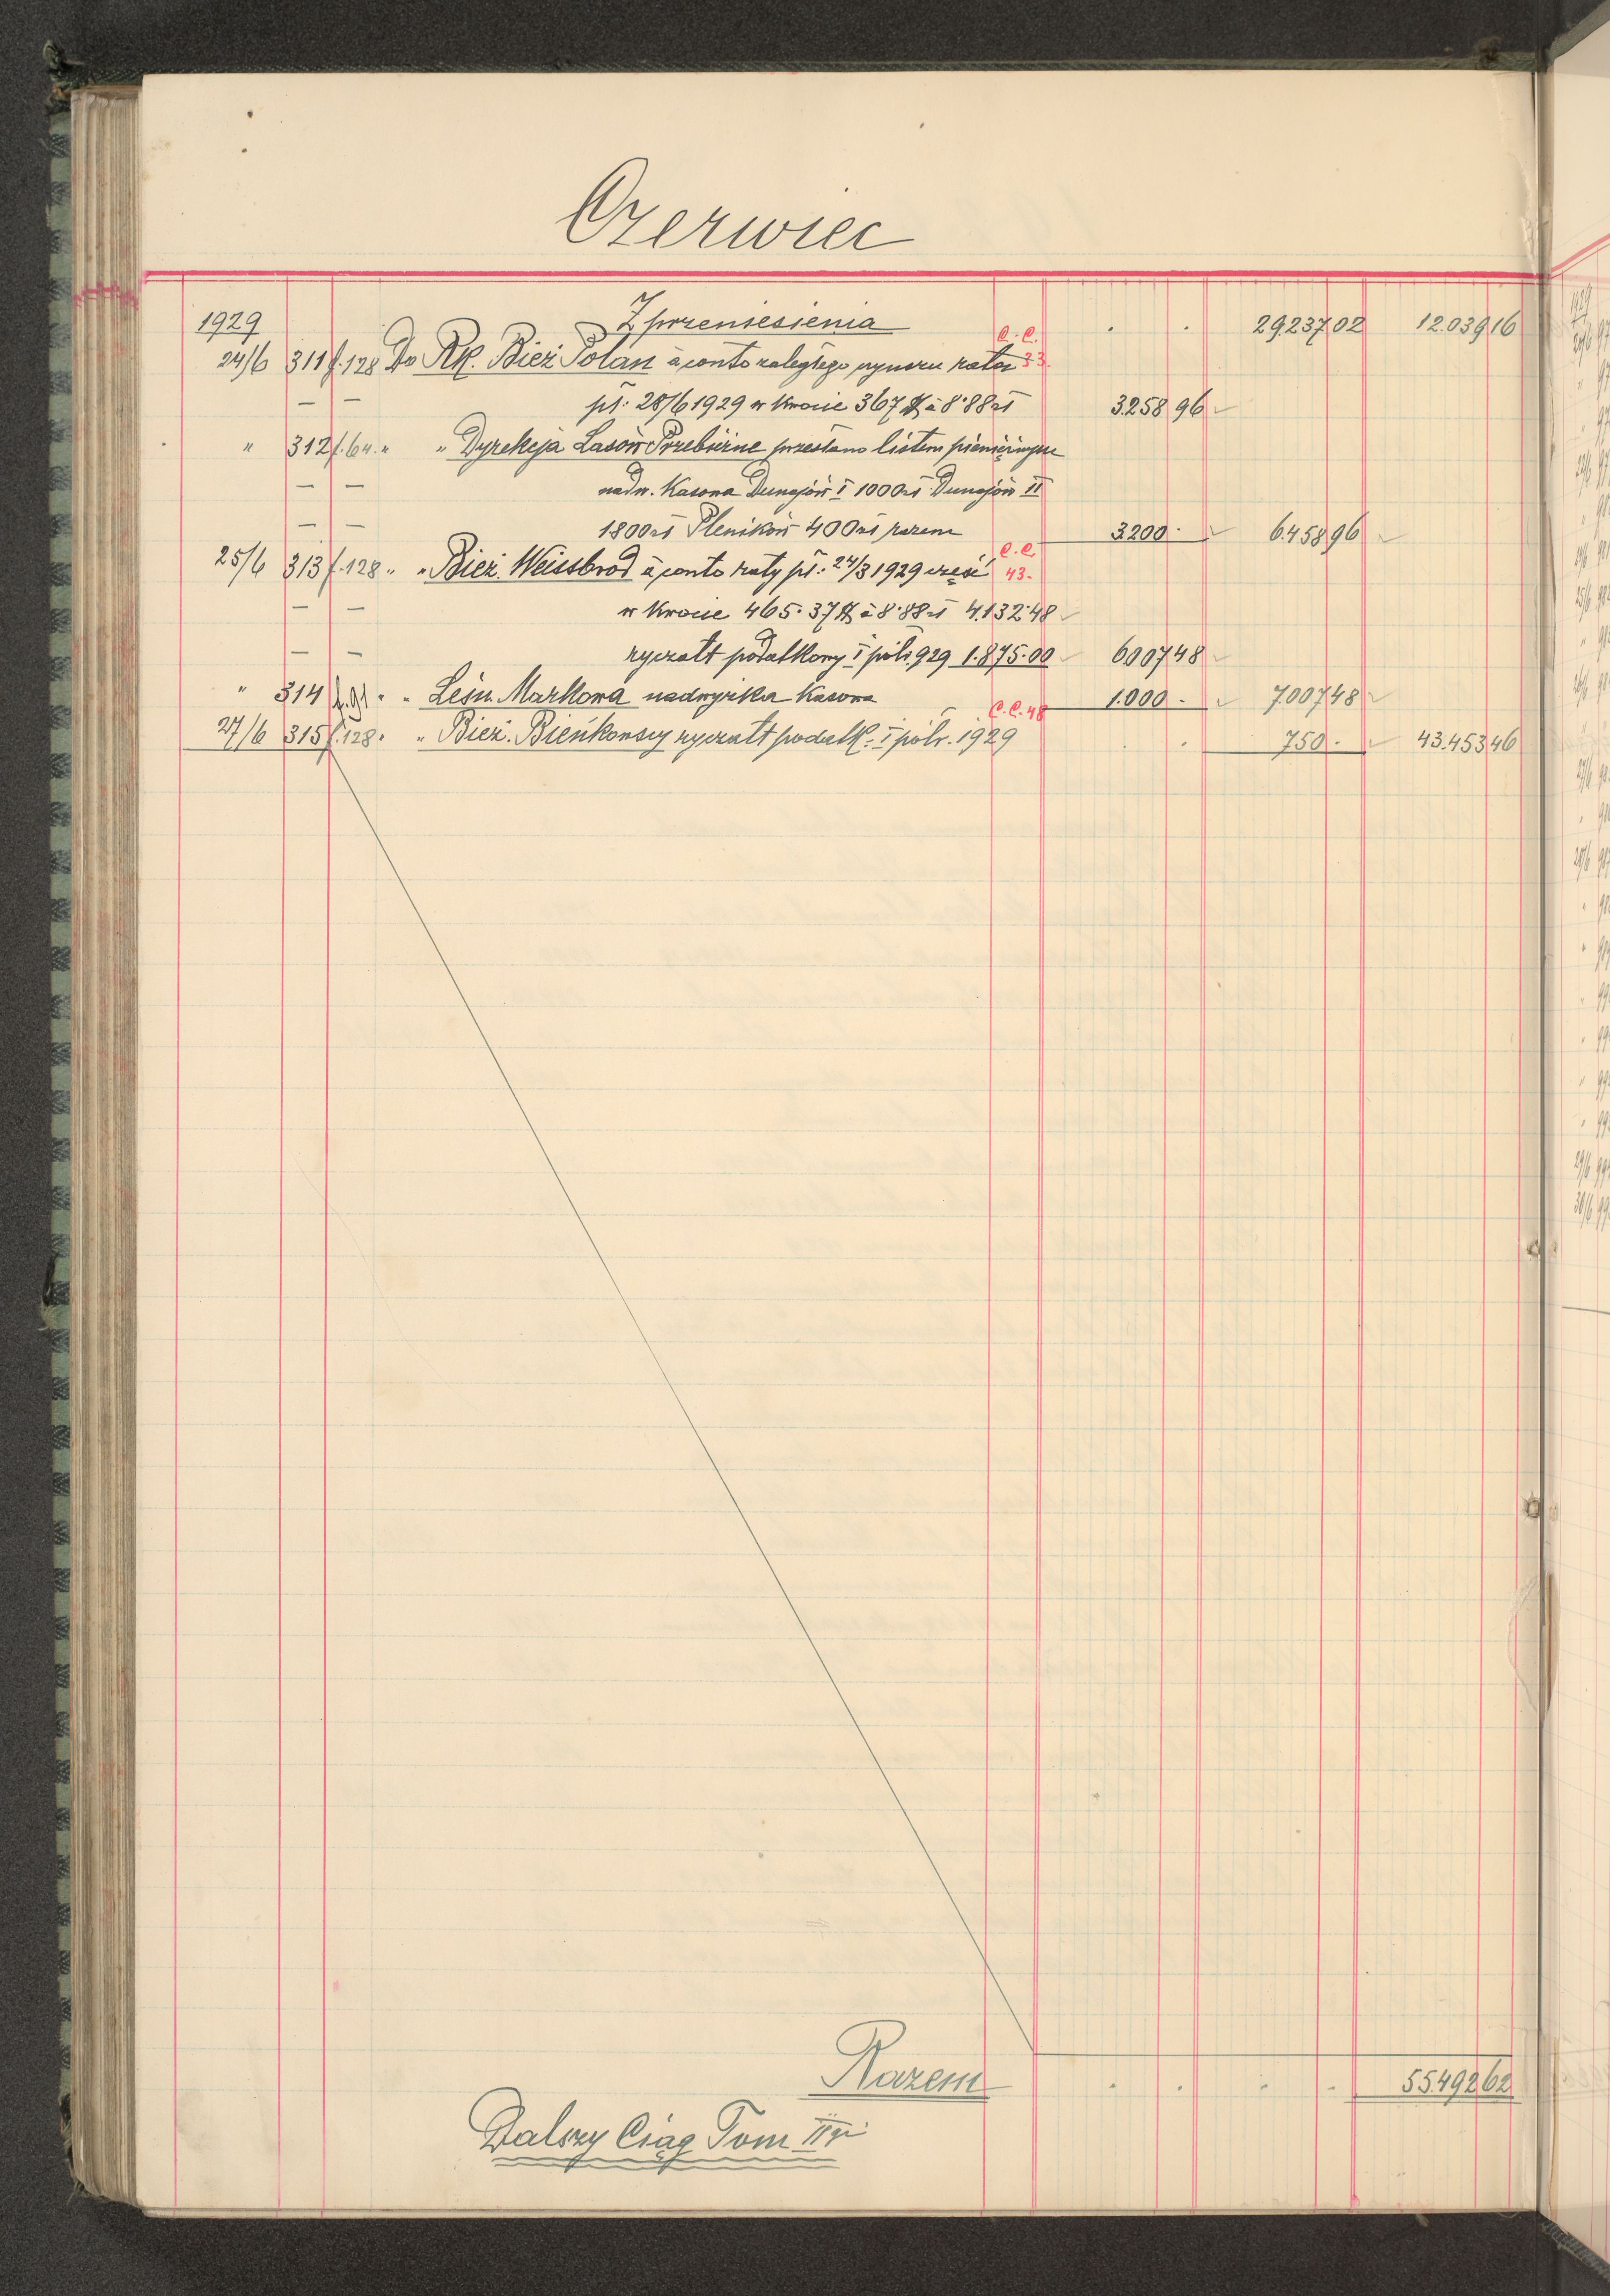 Czerwiec
1929 Z przeniesienia . . 29237 02 12.039 16
24/6 311 f.128 Do Rk. Bież Polan à conto zaległego czynszu rata C.C. 33.
— — pł: 28/6 1929 w kwocie 367 $ à 8·88 zł 3.258 96
" 312 f.64. " " Dyrekcja Lasów Przebićzne przesłano listem pieniężnym
— — nadw. Kasowa Dunajów I 1000 zł Dunajów II
— — 1.800 zł Plenikow 400 zł razem 3200 · 6.458 96
25/6 313 f.128 " " Bież. Weissbrod à conto raty pł: 24/3 1929 część C.C. 43.
— — w kwocie 465·37 $ à 8·88 zł 4.132·48
— — ryczałt podatkowy I półr 929 1.875·00 6.007 48
" 314 " " Leśn. Markowa nadwyżka Kasowa 1.000 · 7.007 48
27/6 315 f.128 " " Bież. Bieńkowscy ryczałt podatk. I półr. 1929 C.C. 48 . . 750 · 43.453 46
Razem . . . . 55.492 62
Dalszy Ciąg Tom II gi